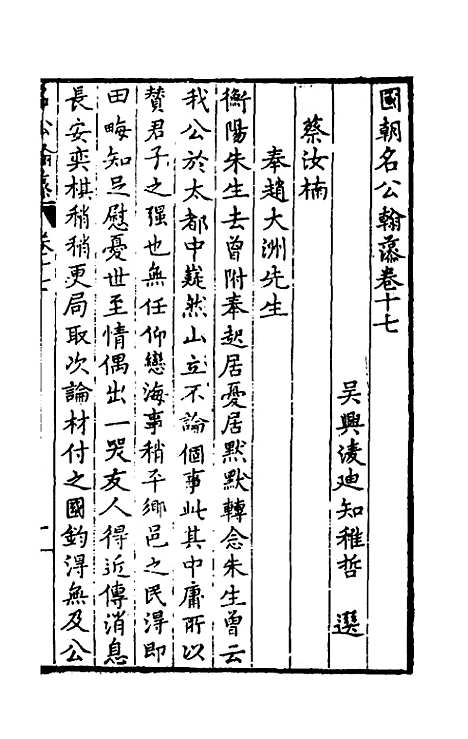 國朝名公翰藻卷十七
吳興凌迪知稚哲 選
蔡汝楠
奉趙大洲先生
衡陽朱生去曾附奉起居憂居默默轉念朱生曾云
我公於太都中嶷然山立不論個事此其中庸所以
贊君子之强也無任仰戀海事稍平鄉邑之民得即
田畮知足慰憂世至情偶出一哭友人得近傳消息
長安奕棋稍稍更局取次論材付之國鈞得無及公
名公翰藻 卷十七 一